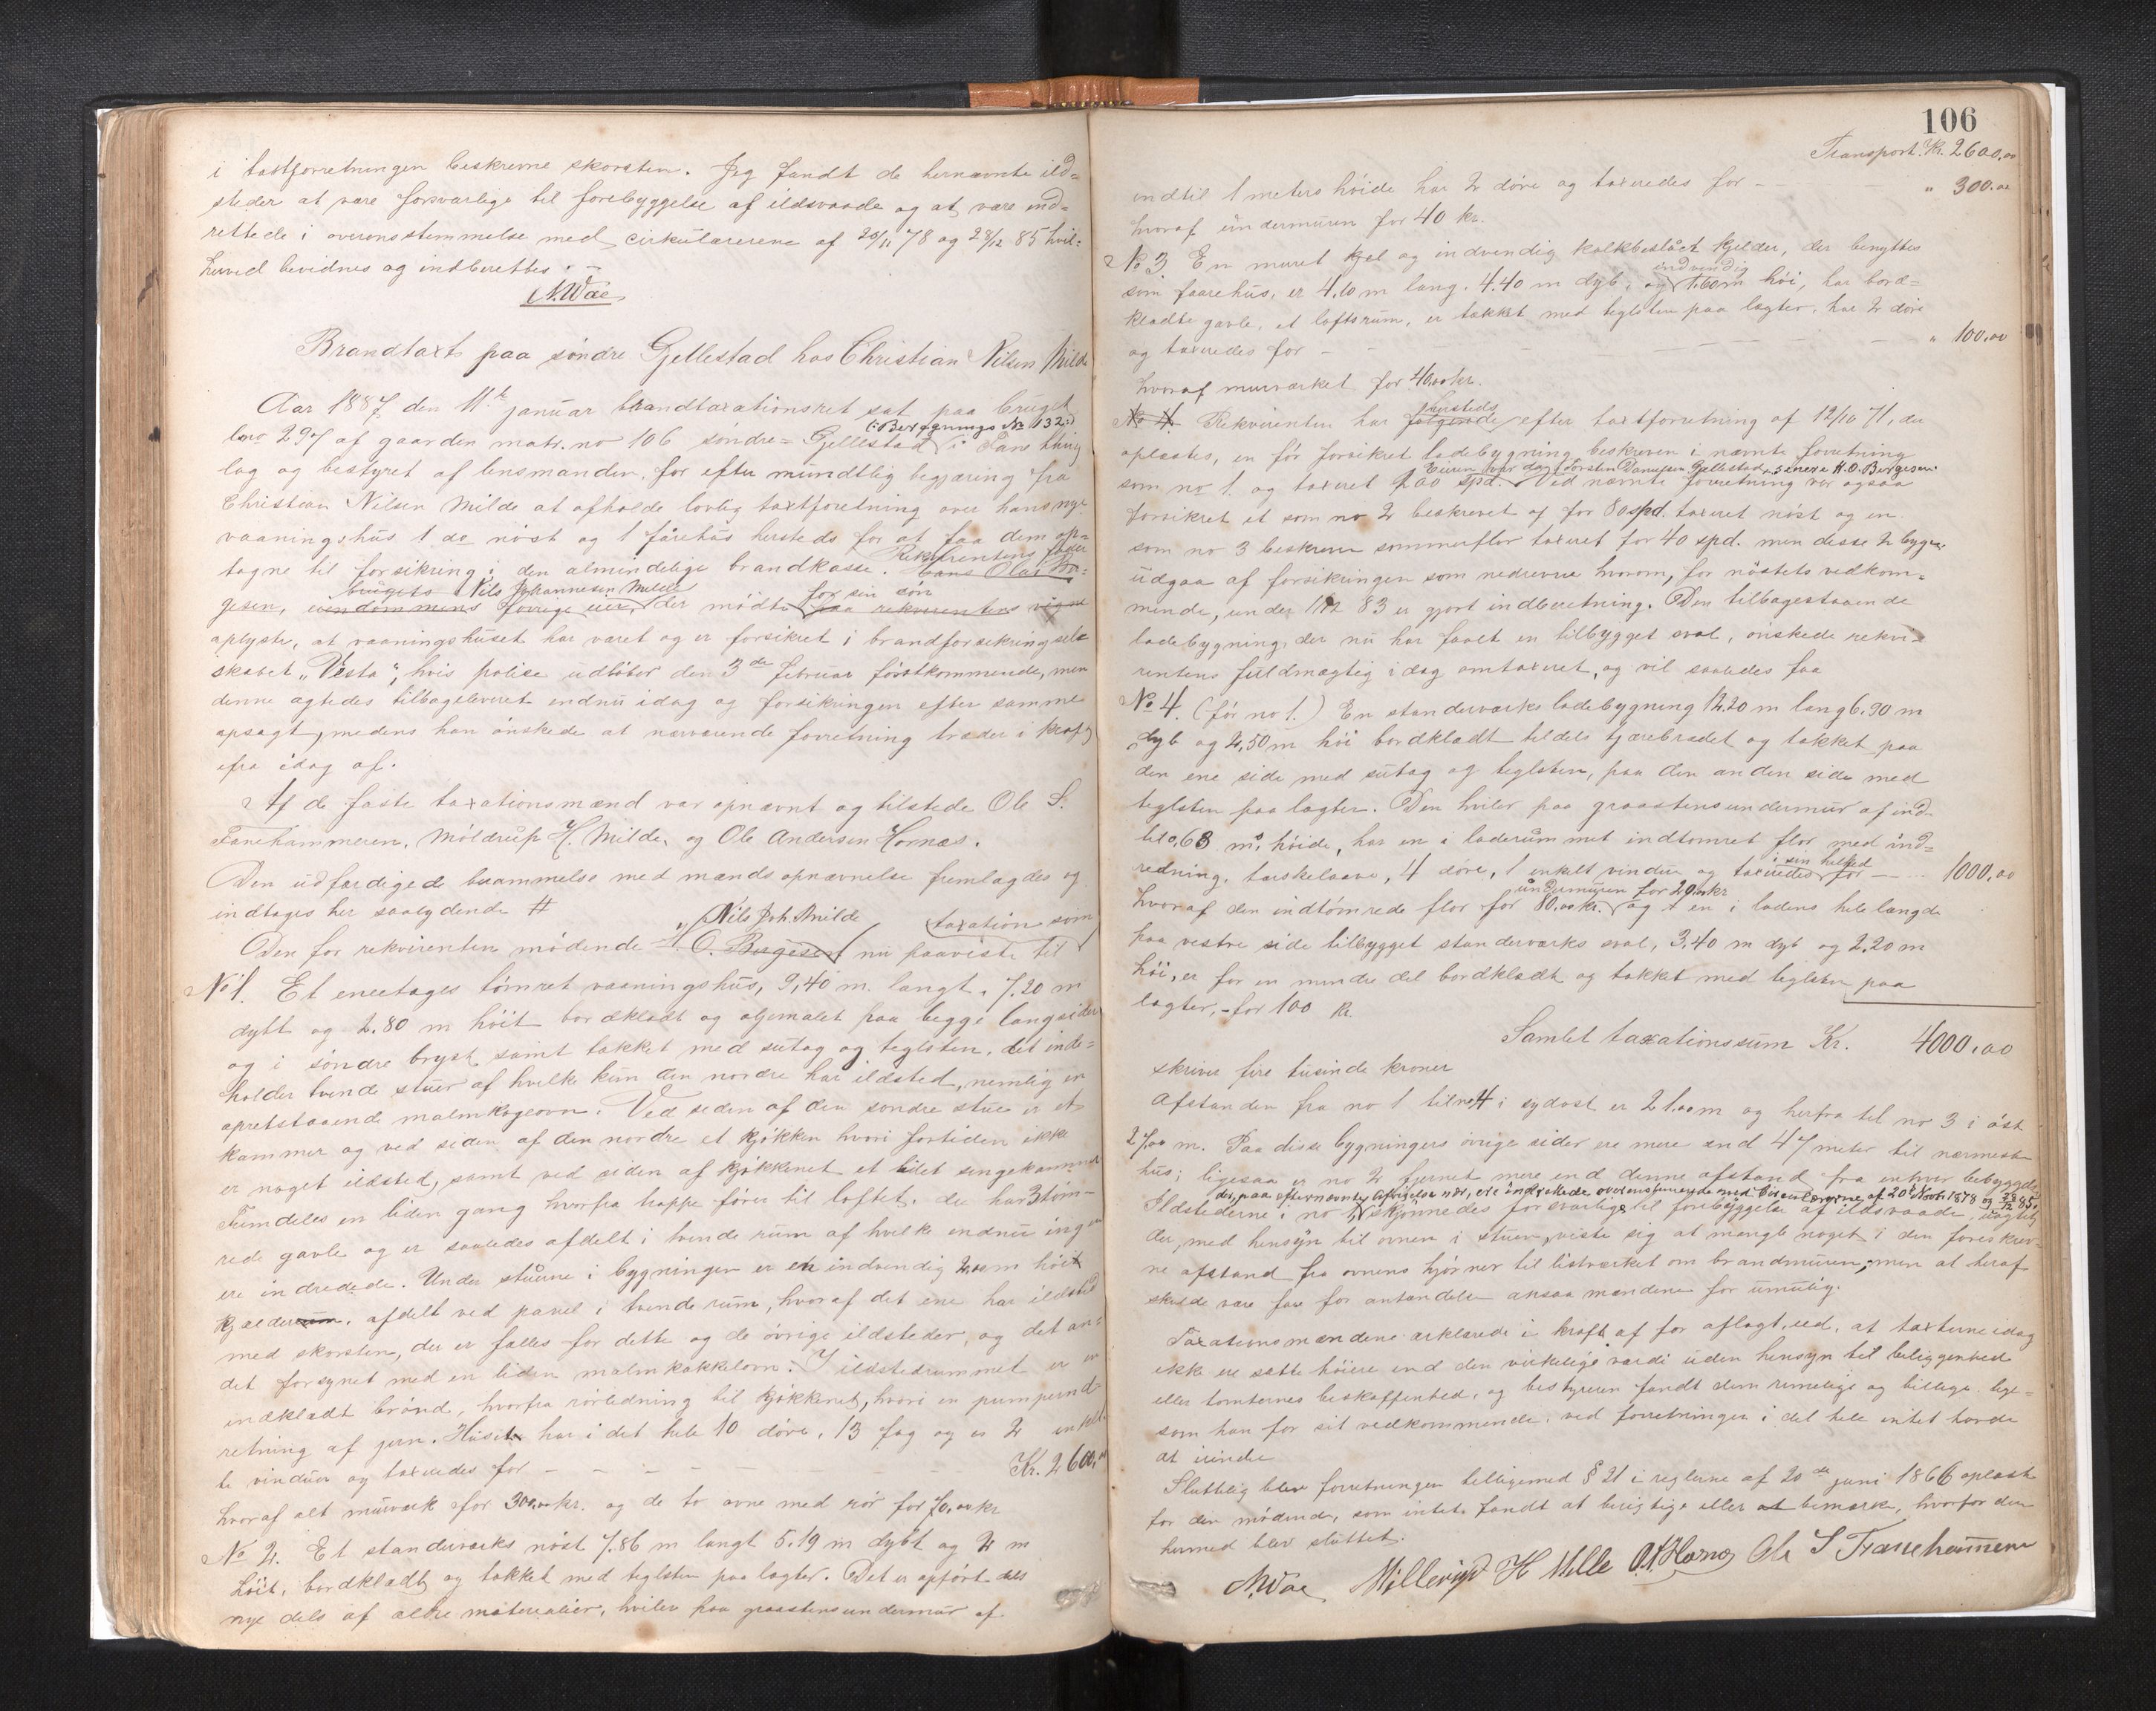 i taxtforretningen beskrevne skorsten. Jeg fandt de hernævnte ild-
steder at være forsvarlige til forebyggelse af ildsvaade og at være ind-
rettede i overensstemmelse med cirkulærerene af 20/11 78 og 28/12 85 hvil-
herved bevidnes og indberettes. –
N. Wae
Brandtaxt paa søndre Gjellestad hos Christian Nilsen Milde
Aar 1887 den 11te januar brandtaxationsret sat paa bruget
lno 297 af gaarden matr. no 106 søndre Gjellestad (:Bergnings No 132:) i Fane thing
lag og bestyret af lensmanden, for efter mundtlig begjæring fra
Christian Nilsen Milde at afholde lovlig taxtforetning over hans nye
vaaningshus 1 do nøst og 1 fårehus hersteds for at faa dem op-
tagne til forsikring i den almindelige brandkasse. Rekvirentens fader
brugets Nils Johannesen Milde for sin søn
gesen, eiendommens forrige eier, der mødte paa rekvirentens vegne
oplyste, at vaaningshuset har været og er forsikret i brandforsekringsel-
skabet "Vesta", hvis police udløber den 3de februar førstkommende, men
denne agtedes tilbageleveret endnu idag og forsikringen efter samme
opsagt, medens han ønskede at nærværende forretning træder i kraft
fra idag af.
Af de faste taxationsmænd var opnævnt og tilstede Ole S.
Fanehammeren, Møldrup H. Milde, og Ole Andersen Hornæs.
Den udfærdigede beammelse med mands opnævnelse fremlagdes og
indtages her saalydende #
Den for rekvirenten mødende Nils Joh. Milde O. Bergesen nu paaviste til taxation som
No 1. Et eneetages tømret vaaningshus, 9,40 m. langt, 7.20 m
dybt og 2.80 m høit bordklædt og oljemalet paa begge langsider
og i søndre bryst samt tækket med sutag og teglsten, det inde-
holder tvende stuer af hvilke kun den nordre har ildsted, nemlig en
opretstaaende malmkogeovn. Ved siden af den søndre stue er et
kammer og ved siden af den nordre et kjøkken hvori fortiden ikke
er noget ildsted, samt ved siden af kjøkkenet et lidet sengekammer
Fremdeles en liden gang hvorfra trappe fører til loftet, der har 3 tøm-
rede gavle og er saaledes afdelt i tvende rum af hvilke endnu ingen
ere indredede. Under stuerne i bygningen er en indvendig 2,00 m høit
kjælderrum, afdelt ved panel i tvende rum, hvoraf det ene har ildsted
med skorsten, der er fælles for dette og de øvrige ildsteder, og det an-
det forsynet med en liden malmkakkelovn. I ildstedrummet er en
indklædt brønd, hvorfra rørledning til kjøkkenet, hvori en pumpeind-
retning af jern. Huset har i det hele 10 døre, 13 fag og 2 enkel-
te vinduer og taxeredes for – – – – – – Kr. 2600,00
hvoraf alt murværk for 300,00 kr. og de to ovne med rør for 70,00 kr
No 2. Et standerværks nøst 7.86 m langt 5.19 m dybt og 2 m
høit, bordklædt og tækket med teglsten paa lægter. Det er opført dels
nye dels af ældre materialier, hviler paa graastensundermur af
106
Transport. Kr. 2600,00
indtil 1 meters høide har 2 døre og taxeredes for – – " 300,00
hvoraf undermuren for 40 kr.
No 3 En muret og indvendig kalkbeslået kjelder, der benyttes
som faarehus, er 4,10 m lang, 4.40 m dyb og indvendig 1.60 m høi, har bord-
klædte gavle, et loftsrum, er tækket med teglsten paa lægter, har 2 døre
og taxeredes for – – – – – – " 100,00
hvoraf murværket for 40,00 kr.
No 4. Rekvirenten har følgende hersteds efter taxtforretning af 12/10 71, der
oplæstes, en før forsikret ladebygning beskreven i nævnte forretning
som no 1. og taxeret 200 spd. Eieren var da Torsten Danielsen Gjellestad, senere H. O. Bergesen. Ved nævnte forretning var ogsaa
forsikret et som no 2 beskrevet og for 80 spd. taxeret nøst og en
som no 3 beskreven sommerflor taxeret for 40 spd. men disse 2 bygn.
udgaa af forsikringen som nedrevne hvorom, for nøstets vedkom-
mende, under 1/12 83 er gjort indberetning. Den tilbagestaaende
ladebygning, der nu har faaet en tilbygget sval, ønskede rekvi-
rentens fuldmægtig i dag omtaxeret, og vil saaledes faa
No 4. (før no 1.) En standerværks ladebygning 12.20 m lang 6.90 m
dyb og 2,50 m høi bordklædt tildels tjærebrædet og tækket paa
den ene side med sutag og teglsten, paa den anden side med
teglsten paa lægter. Den hviler paa graastensundermur af ind-
til 0,63 m. høide, har en i laderummet indtømret flor med ind-
redning, tærskelaave, 4 døre, 1 enkelt vindu og taxeredes i sin helhed for – – 1000,00
hvoraf den indtømrede flor for 80,00 kr. undermuren for 20,00 kr og en i ladens hele længde
paa vestre side tilbygget standerværks sval, 3,40 m dyb og 2.20 m
høi, er for en mindre del bordklædt og tækket med teglsten paa
lægter, – for 100 kr.
Samlet taxationssum Kr. 4000,00
skriver fire tusinde kroner
Afstanden fra no 1 til no 4 i sydost er 21,00 m og herfra til no 3 i øst
27,00 m. Paa disse bygningers øvrige sider ere mere end 47 meter til nærmeste
hus; ligesaa er no 2 fjernet mere end denne afstand fra enhver bebyggelse
der, paa efternævnte afvigelse nær, ere indrettede overensstemmende med cirkulærerne af 20de Novbr 1878 og 28/12 85,
Ildstederne i no 1, skjønnedes forsvarlige til forebyggelse af ildsvaade, uagtet
der, med hensyn til ovnen i stuen, viste sig at mangle noget i den foreskrev-
ne afstand fra ovnens hjørner til listværket om brandmuren, men at heraf
skulde være fare for antændelse ansaa mændene for umulig.
Taxationsmændene erklærede i kraft af før aflagt eed, at taxterne idag
ikke ere satte høiere end den virkelige værdi uden hensyn til beliggenhed
eller tomternes beskaffenhed, og bestyreren fandt dem rimelige og billige lige-
som han for sit vedkommende, ved forretningen i det hele intet havde
at erindre
Sluttelig blev forretningen tilligemed § 21 i reglerne af 20de juni 1866 oplæst
for den mødende, som intet fandt at berigtige eller at bemærke, hvorfor den
hermed blev sluttet.
N. Wae Møllerup H Mille O. A Hornæs Ole S Fanehammeren